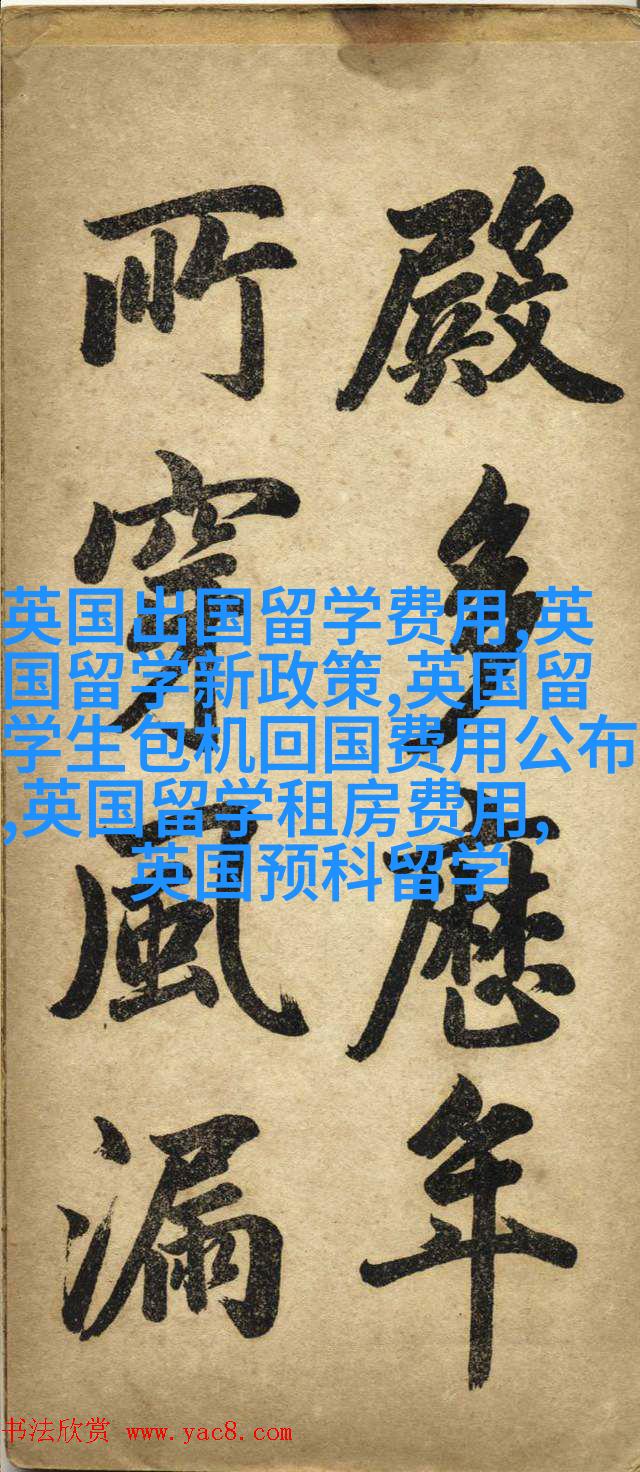 殿多歷年
所穿風漏
英国出国留学费用,英
国留学新政策,英国留
学生包机回国费用公布
,英国留学租房费用,
英国预科留学
书法欣赏 www.yac8.com